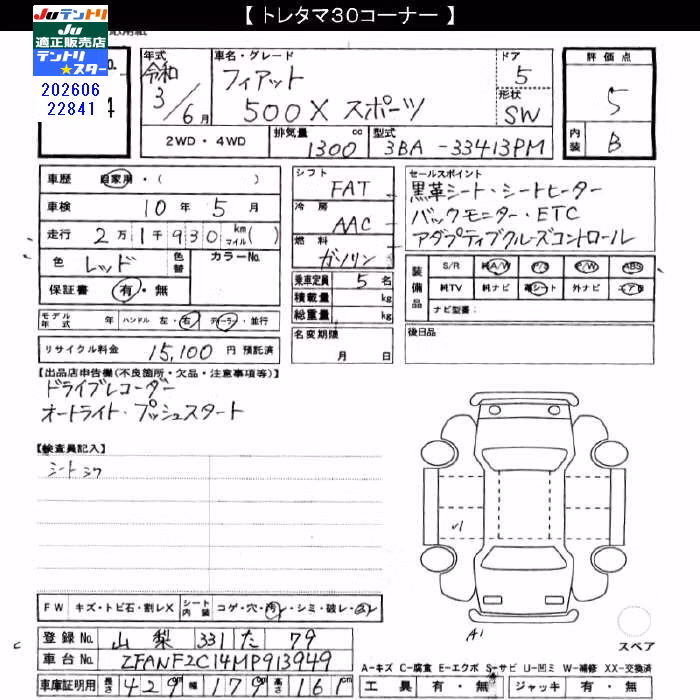 【 トレタマ30コーナー 】
Juテントリ
Ju
適正販売店
テントリ
★スター
202606
22841
年式
令和
3/6月
車名・グレード
フィアット
500X スポーツ
ドア
5
形状
SW
評価点
5
内装
B
2WD・4WD
排気量
1300 cc
型式
3BA -33413PM
車歴 自家用・( )
車検 10年 5月
走行 2万1千930 km マイル( )
色 レッド 色替 カラーNo.
保証書 有・無
モデル年式 年 ハンドル 左・右 ディーラー・並行
リサイクル料金 15,100 円 預託済
シフト FAT
冷房 AAC
燃料 ガソリン
乗車定員 5 名
積載量 kg
総重量 kg
名変期限
月 日
セールスポイント
黒革シート・シートヒーター
バックモニター・ETC
アダプティブクルーズコントロール
装備品
S/R 純A/W P/S P/W ABS
純TV 純ナビ 革シート 外ナビ エアB
ナビ型番:
後日品
【出品店申告欄(不良箇所・欠品・注意事項等)】
ドライブレコーダー
オートライト・プッシュスタート
【検査員記入】
シートシワ
A1
FW キズ・トビ石・割レX シート内装 コゲ・穴・汚レ・シミ・破レ・スレ
登録No. 山梨 331 た 79
車台No. ZFANF2C14MP913949
車庫証明用 長さ 429 幅 179 高さ 161 cm
スペア
A-キズ C-腐食 E-エクボ S-サビ U-凹ミ W-補修 XX-交換済
工具 有・無 ジャッキ 有・無